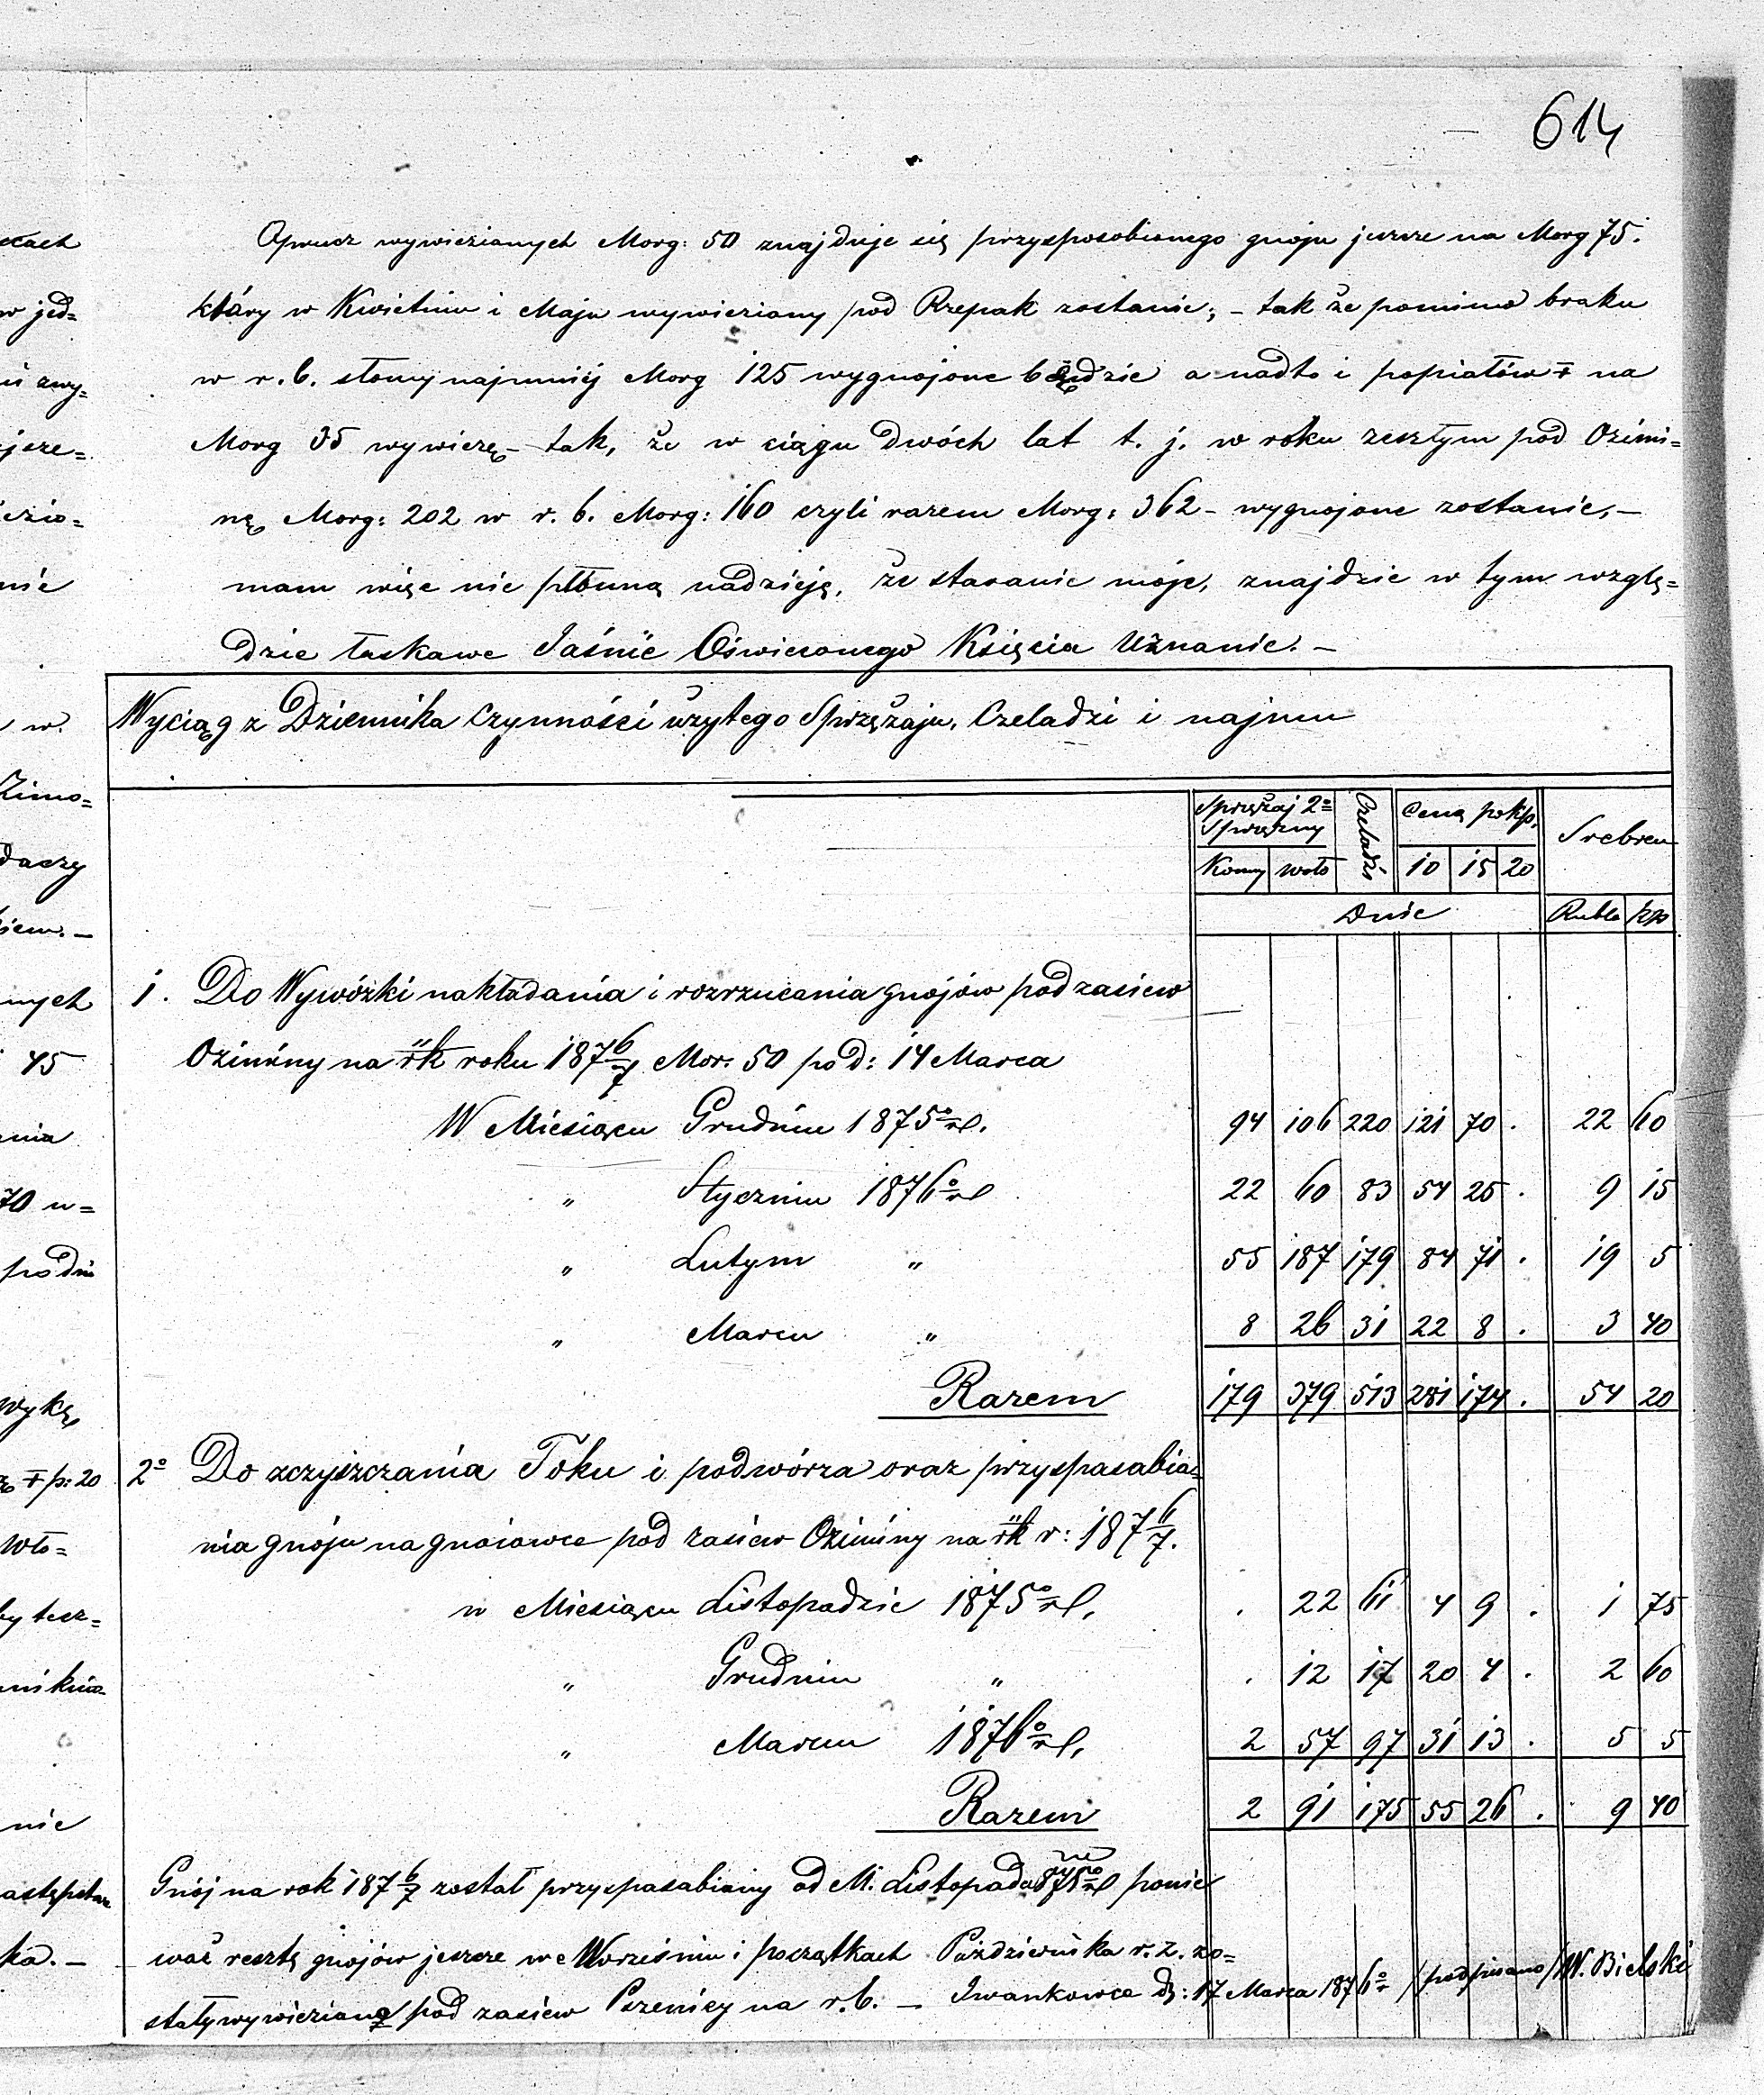 614
Oprucz wywiezianych Morg: 50 znajduje się przysposobionego gnoju jeszcze na Morg 75.
który w Kwietniu i Maju wywieziany pod Rzepak zostanie; – tak że pomimo braku
w r. b. słomy najmniej Morg 125 wygnojone będzie a nadto i popiałów + na
Morg 35 wywiezę – tak, że w ciągu dwóch lat t. j. w roku zeszłym pod Ozimi=
nę Morg: 202 w r. b. Morg: 160 czyli razem Morg: 362 – wygnojone zostanie, –
mam więc nie płonną nadzieję, że staranie moje, znajdzie w tym wzglę=
dzie łaskawe Jaśnie Oświeconego Księcia Uznanie. –
Wyciąg z Dziennika czynności użytego Sprzężaju, Czeladzi i najmu
Sprzężaj 2º Sprzężny | Czeladź | Cena po kp. | Srebrem
Konny | woło | 10 | 15 | 20
Dnie | Ruble | kp
1. Do Wywózki nakładania i rozrzucania gnojów pod zasiew
Oziminy na rk roku 1876/7 Mor. 50 pod: 14 Marca
W Miesiącu Grudniu 1875º rl. 94 106 220 121 70 . 22 60
" Styczniu 1876º rl 22 60 83 54 25 . 9 15
" Lutym " 55 187 179 84 71 . 19 5
" Marcu " 8 26 31 22 8 . 3 40
Razem 179 379 513 281 174 . 54 20
2º Do zczyszczania Toku i podwórza oraz przyspasabia=
nia gnoju na gnoiowce pod zasiew Oziminy na rk r: 1876/7.
w Miesiącu Listopadzie 1875º rl. . 22 61 4 9 . 1 75
" Grudniu " . 12 17 20 4 . 2 60
" Marcu 1876º rl. 2 57 97 31 13 . 5 5
Razem 2 91 175 55 26 . 9 40
Gnój na rok 1876/7 został przyspasabiany od M. Listopada 1875º rl ponie
waż resztę gnojów jeszcze we Wrześniu i początkach Października r. z. zo=
stały wywieziane pod zasiew Pszenicy na r. b. – Iwankowce d: 17 Marca 1876º r /podpisano/ W. Bielski
ach
w jed=
zwy=
jsze=
ezio=
nie
w.
Zimo=
daczy
kiem. –
nych
45
ania
70 u=
po dni
wykę,
+ p: 20
Wło=
by tesz=
nie
astępstw
ka. –